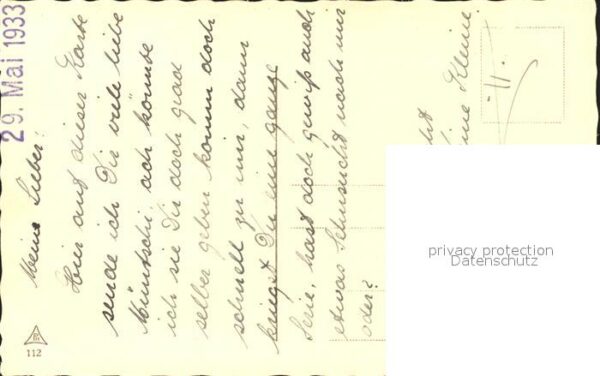 29. Mai 1933
Mein Lieber!
Hier auf dieser Karte
sende ich Dir viele liebe
Müntschi. ach könnte
ich sie Dir doch grad
selber geben komm doch
schnell zu mir, dann
kriegst Du eine ganze
Serie, hast doch gewiß auch
etwas Sehnsucht nach mir
oder?
Kleine
-11.
112
privacy protection
Datenschutz